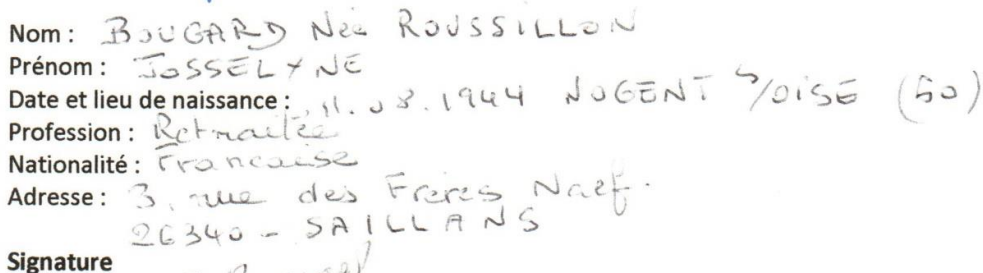 Nom : BOUGARD Née ROUSSILLON
Prénom : JOSSELYNE
Date et lieu de naissance : 11.08.1944 NOGENT S/OISE (60)
Profession : Retraitée
Nationalité : Francaise
Adresse : 3, rue des Freres Naef.
26340 - SAILLANS
Signature